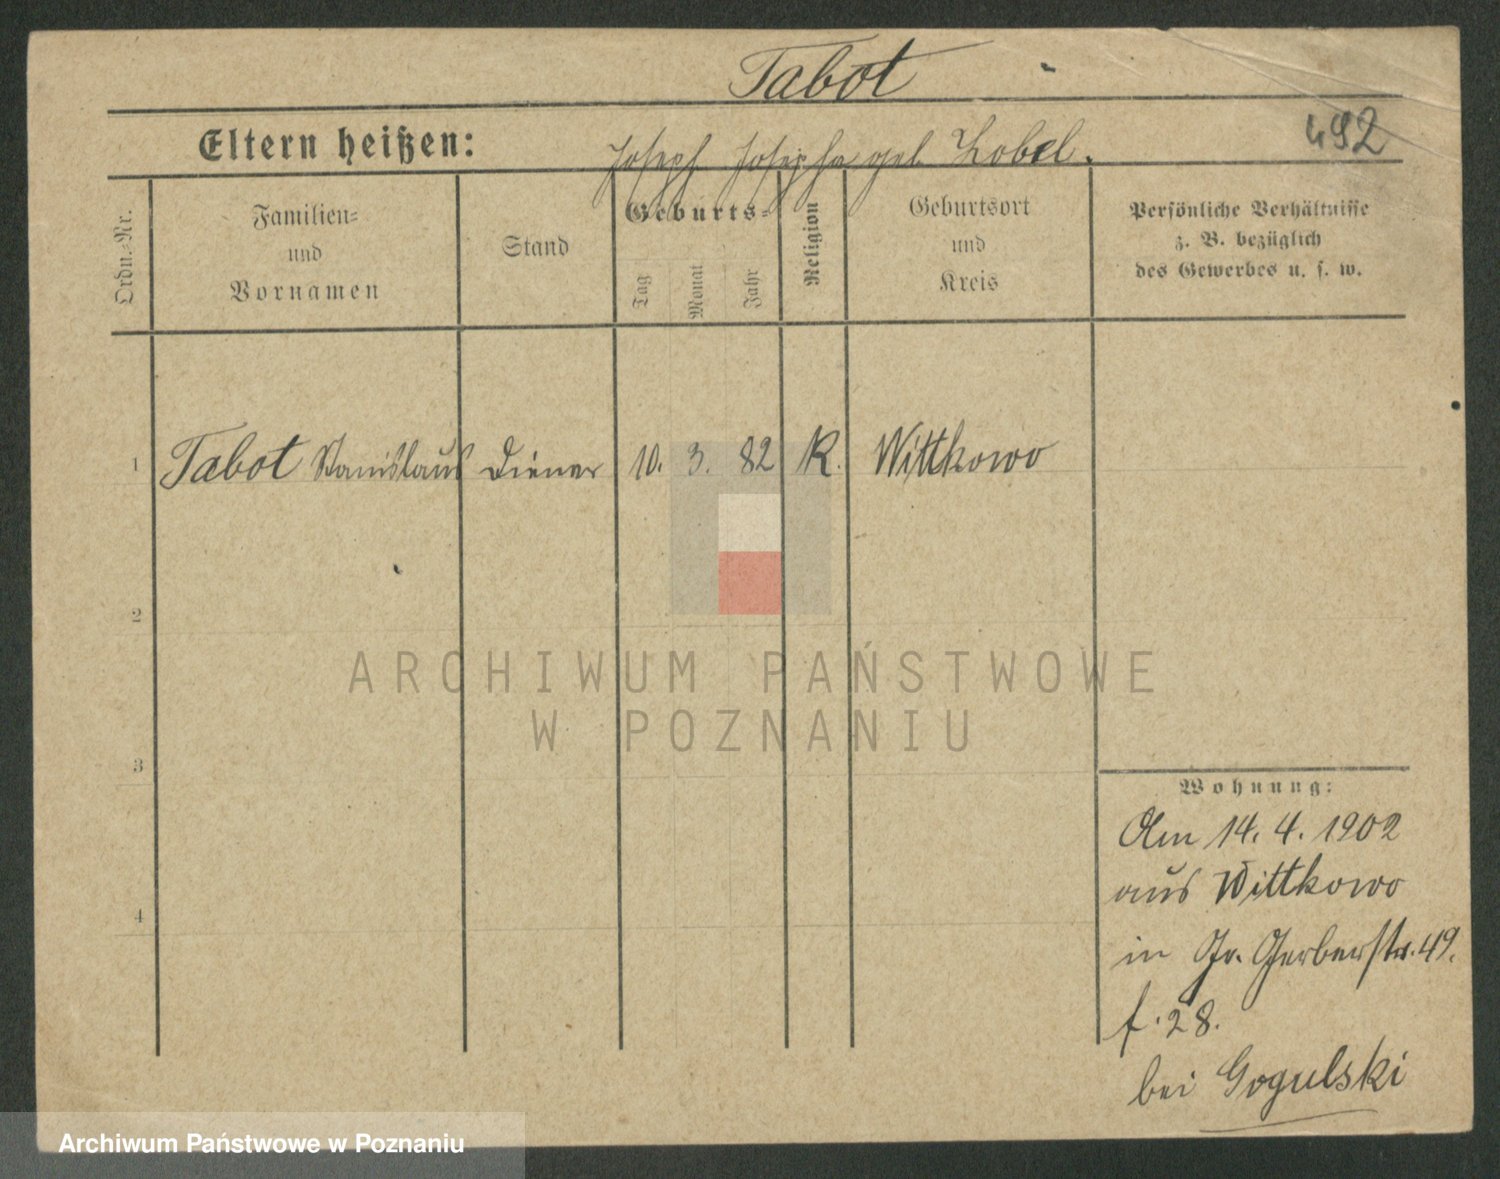 Tabot
492
Eltern heißen: Joseph Josepha geb. Zobel.
Ordn.-Nr.
Familien-
und
Vornamen
Stand
Geburts-
Tag
Monat
Jahr
Religion
Geburtsort
und
Kreis
Persönliche Verhältnisse
z. B. bezüglich
des Gewerbes u. s. w.
1 Tabot Stanislaus Diener 10. 3. 82 K. Wittkowo
2
3
4
Wohnung:
Am 14. 4. 1902
aus Wittkowo
in Gr. Gerberstr. 49.
f. 28.
bei Gogulski
ARCHIWUM PAŃSTWOWE
W POZNANIU
Archiwum Państwowe w Poznaniu